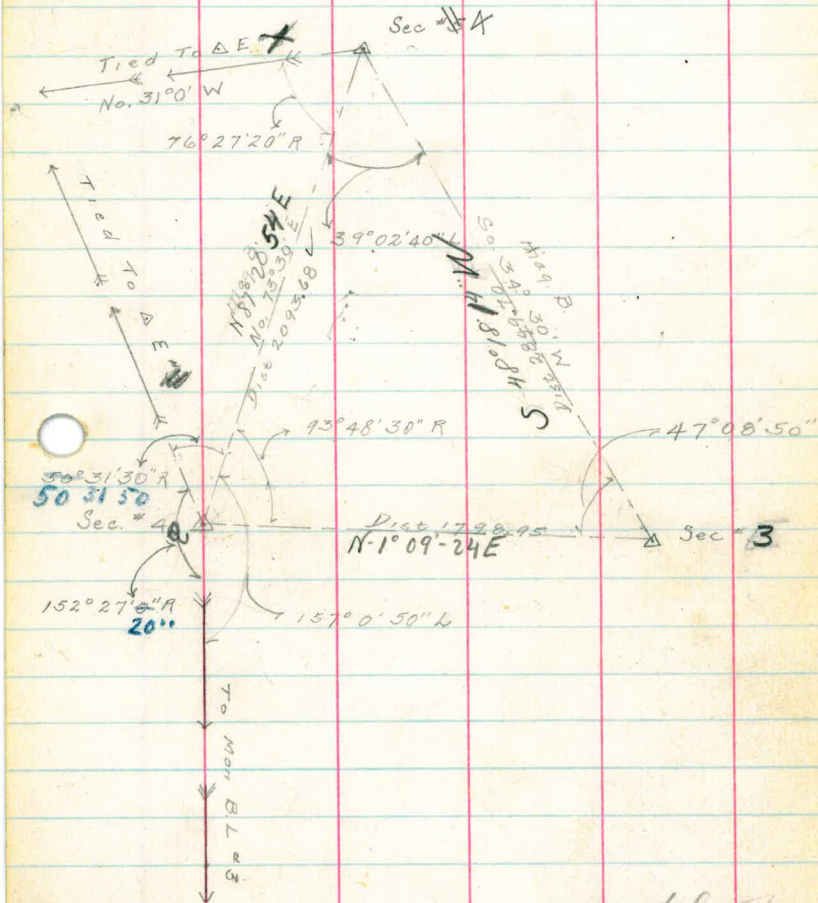 Sec # 4
Tied To △ E X
No. 31°0' W
76°27'20" R
Tied To △ E
N 87°28'54 E
No. 73°30' E
Dist 2093.68 ✓
39°02'40" L
Diag. B.
So. 34° 30' W
Dist 2849.10
S 48°18'14 W
93°48'30" R
47°08'50"
50°31'30" R
50 31 50
Sec. # 2
Dist 1798.95
N-1°09'-24E
Sec # 3
152°27'0" R
20"
157°0'50" L
To Mon B.L #3